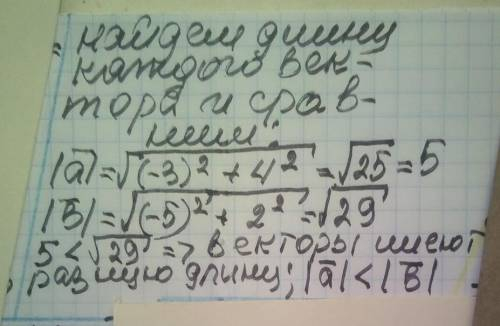 найдем длину
каждого век-
тора и срав-
ним:
|a̅| = √(-3)² + 4² = √25 = 5
|b̅| = √(-5)² + 2² = √29
5 < √29 => векторы имеют
разную длину; |a̅| < |b̅|